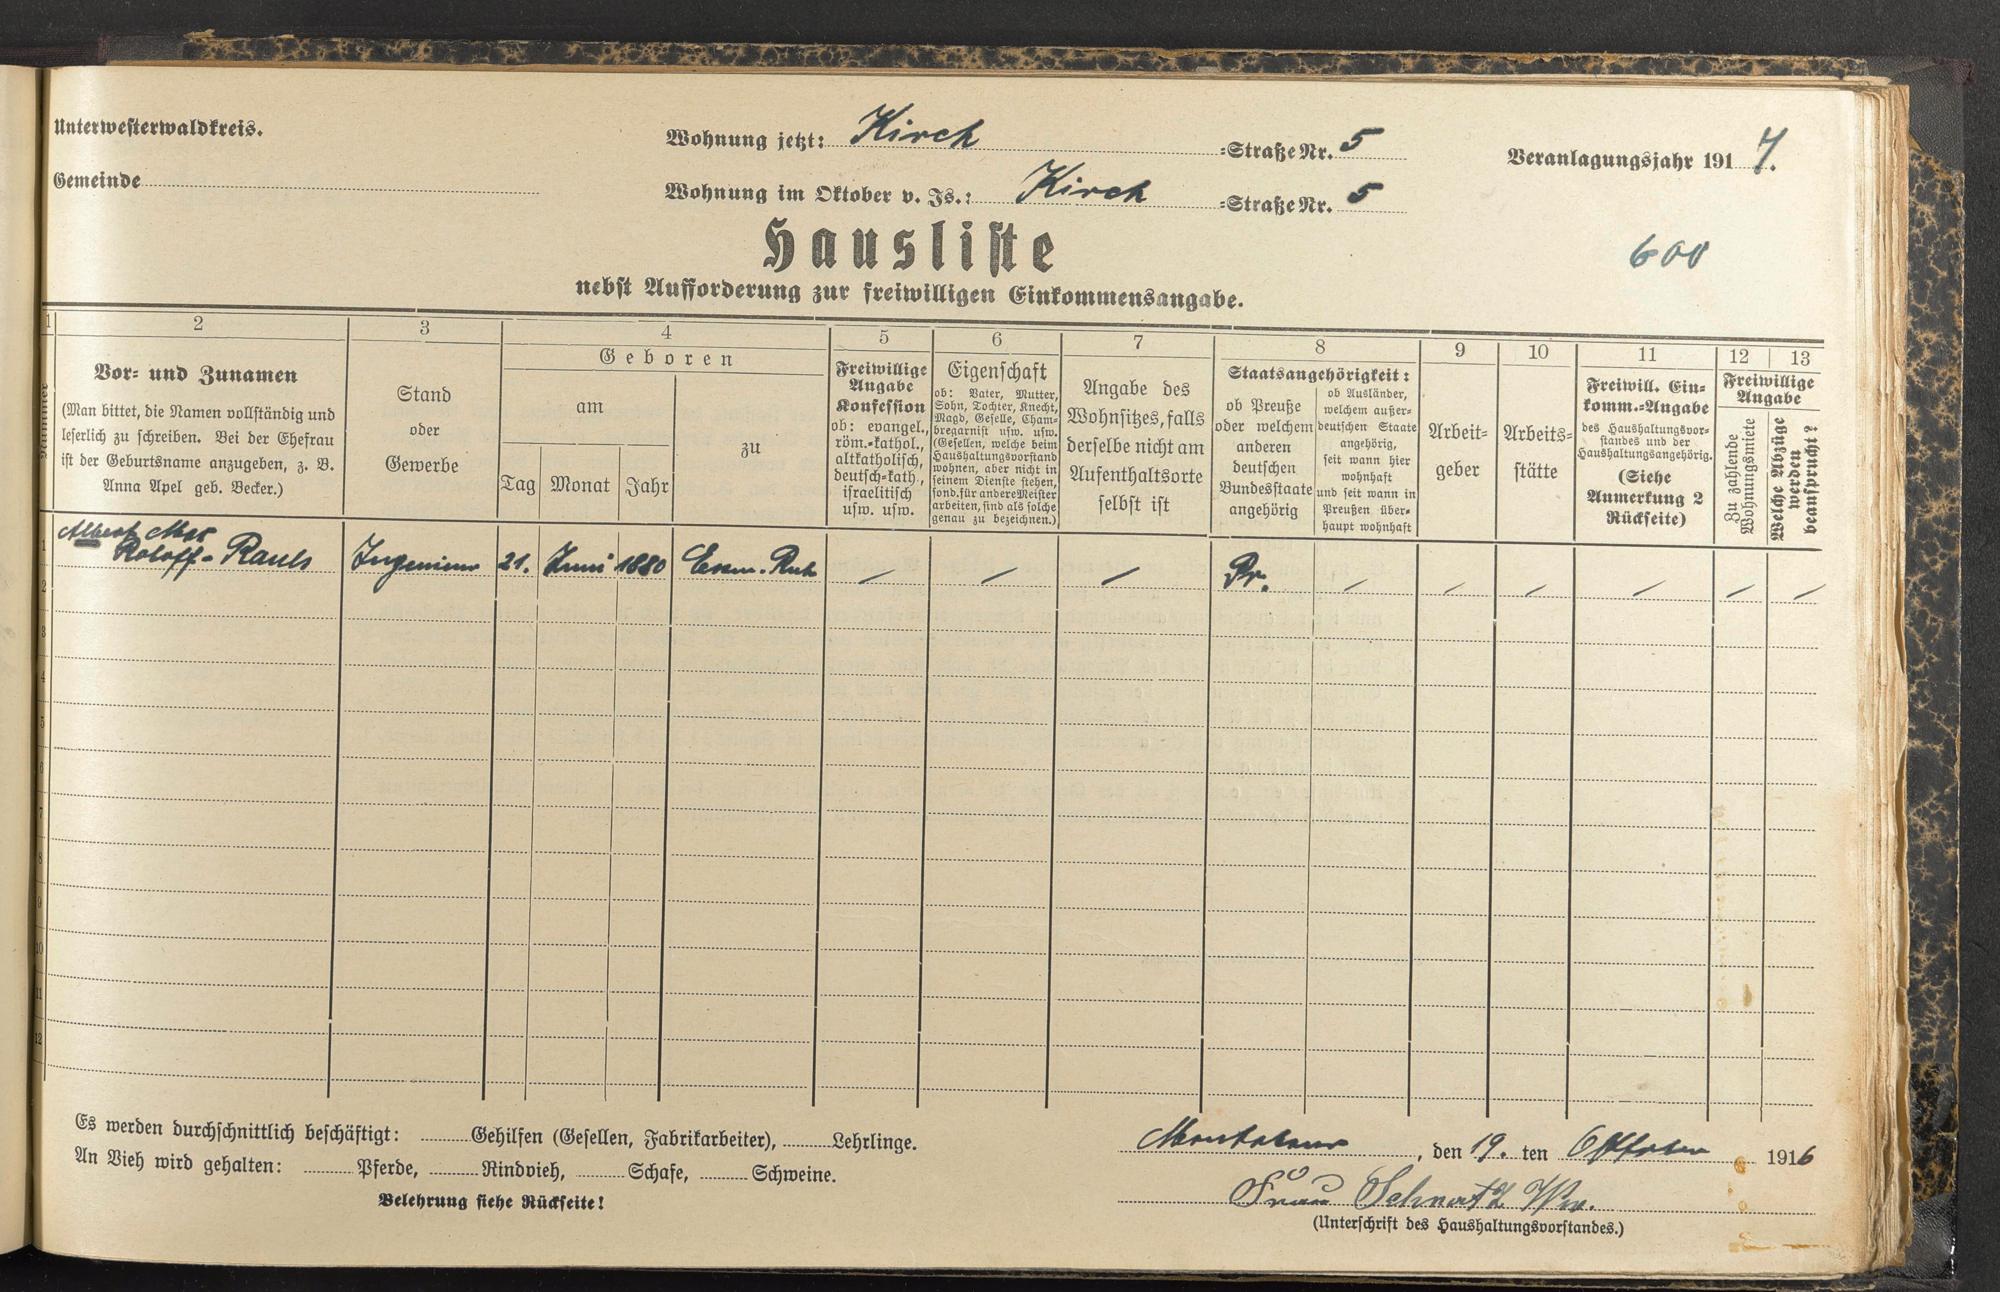 Unterwesterwaldkreis.
Gemeinde
Wohnung jetzt: Kirch -Straße Nr. 5
Wohnung im Oktober v. Js.: Kirch -Straße Nr. 5
Veranlagungsjahr 1917.
600
Hausliste
nebst Aufforderung zur freiwilligen Einkommensangabe.
1 2 3 4 5 6 7 8 9 10 11 12 13
Nummer
Vor- und Zunamen
(Man bittet, die Namen vollständig und
leserlich zu schreiben. Bei der Ehefrau
ist der Geburtsname anzugeben, z. B.
Anna Apel geb. Becker.)
Stand
oder
Gewerbe
Geboren
am
Tag Monat Jahr
zu
Freiwillige
Angabe
Konfession
ob: evangel.,
röm.-kathol.,
altkatholisch,
deutsch-kath.,
israelitisch
usw. usw.
Eigenschaft
ob: Vater, Mutter,
Sohn, Tochter, Knecht,
Magd, Geselle, Cham-
bregarnist usw. usw.
(Gesellen, welche beim
Haushaltungsvorstand
wohnen, aber nicht in
seinem Dienste stehen,
sond. für andere Meister
arbeiten, sind als solche
genau zu bezeichnen.)
Angabe des
Wohnsitzes, falls
derselbe nicht am
Aufenthaltsorte
selbst ist
Staatsangehörigkeit:
ob Preuße
oder welchem
anderen
deutschen
Bundesstaate
angehörig
ob Ausländer,
welchem außer-
deutschen Staate
angehörig,
seit wann hier
wohnhaft
und seit wann in
Preußen über-
haupt wohnhaft
Arbeit-
geber
Arbeits-
stätte
Freiwill. Ein-
komm.-Angabe
des Haushaltungsvor-
standes und der
Haushaltungsangehörig.
(Siehe
Anmerkung 2
Rückseite)
Freiwillige
Angabe
Zu zahlende
Wohnungsmiete
Welche Abzüge
werden
beansprucht?
Albert
1 Roloff-Rauls Ingenieur 21. Juni 1880 Essen-Ruh / / / Pr. / / / / / /
2
3
4
5
6
7
8
9
10
11
12
Es werden durchschnittlich beschäftigt: Gehilfen (Gesellen, Fabrikarbeiter), Lehrlinge.
An Vieh wird gehalten: Pferde, Rindvieh, Schafe, Schweine.
Belehrung siehe Rückseite!
Montabaur, den 19. ten Oktober 1916
Frau Schnatz Ww.
(Unterschrift des Haushaltungsvorstandes.)